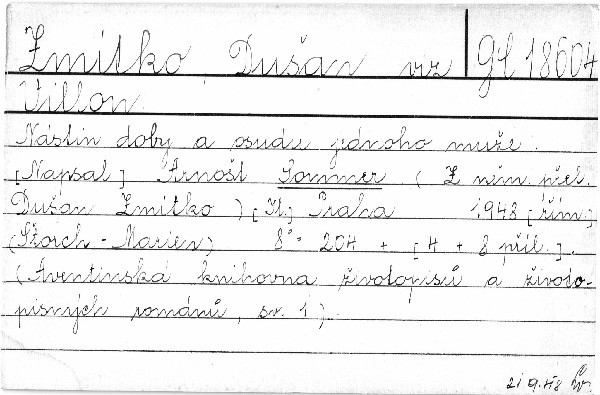 Zmitko Dušan viz Gl 18604
Villon.
Nástin doby a osudu jednoho muže.
[Napsal] Arnošt Sommer (Z něm. přel.
Dušan Zmitko) [Il.] Praha 1948 [řím.]
(Štorch-Marien) 8° 204 + [4 + 8 příl.].
(Aventinská knihovna životopisů a životo-
pisných románů, sv. 1).
21 9.48